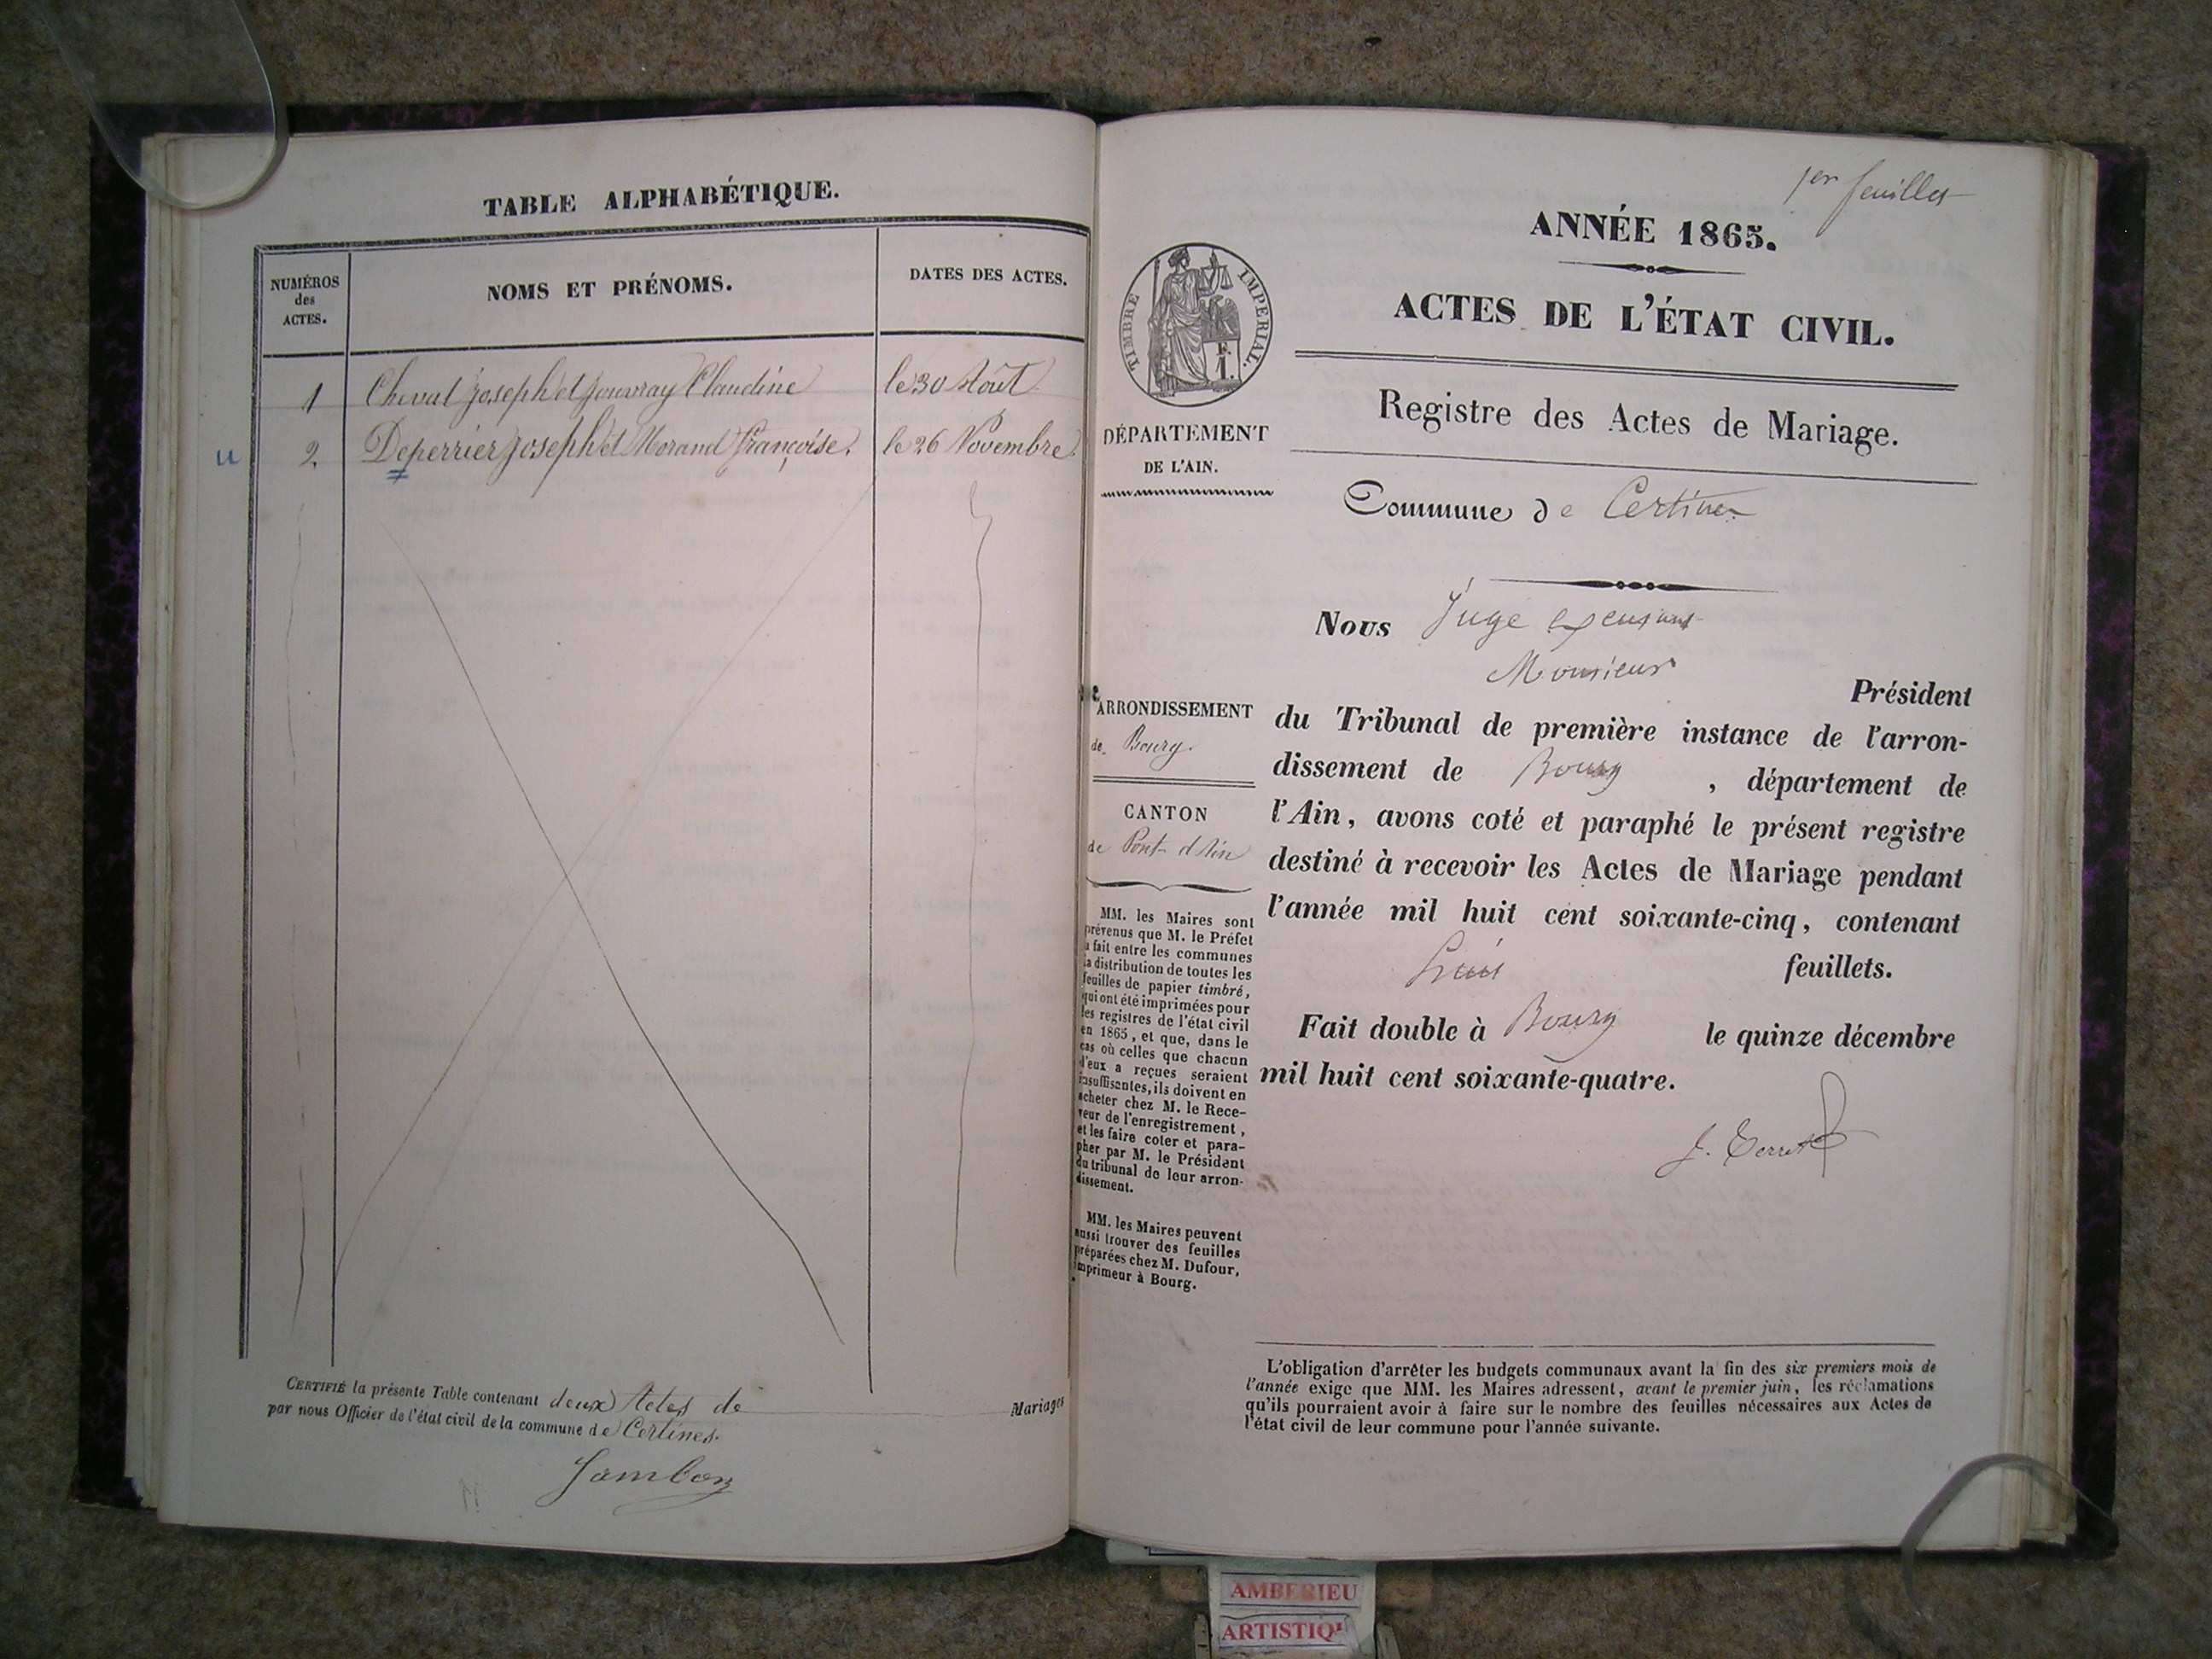 TABLE ALPHABÉTIQUE.
NUMÉROS
des
ACTES.
NOMS ET PRÉNOMS.
DATES DES ACTES.
1 Cheval Joseph et Jouvray Claudine le 30 Août
2 Deperrier Joseph et Morand Françoise. le 26 Novembre.
CERTIFIÉ la présente Table contenant deux Actes de Mariages
par nous Officier de l'état civil de la commune de Certines.
Jambon
1er feuillet
ANNÉE 1865.
ACTES DE L'ÉTAT CIVIL.
Registre des Actes de Mariage.
TIMBRE IMPÉRIAL.
F.
1.
DÉPARTEMENT
DE L'AIN.
Commune de Certines
Nous Juge
Monsieur
Président
du Tribunal de première instance de l'arron-
dissement de Bourg, département de
l'Ain, avons coté et paraphé le présent registre
destiné à recevoir les Actes de Mariage pendant
l'année mil huit cent soixante-cinq, contenant
feuillets.
Fait double à Bourg le quinze décembre
mil huit cent soixante-quatre.
ARRONDISSEMENT
de Bourg.
CANTON
de Pont-d'Ain
MM. les Maires sont
prévenus que M. le Préfet
a fait entre les communes
la distribution de toutes les
feuilles de papier timbré,
qui ont été imprimées pour
les registres de l'état civil
en 1865, et que, dans le
cas où celles que chacun
d'eux a reçues seraient
insuffisantes, ils doivent en
acheter chez M. le Rece-
veur de l'enregistrement,
et les faire coter et para-
pher par M. le Président
du tribunal de leur arron-
dissement.
MM. les Maires peuvent
aussi trouver des feuilles
préparées chez M. Dufour,
imprimeur à Bourg.
L'obligation d'arrêter les budgets communaux avant la fin des six premiers mois de
l'année exige que MM. les Maires adressent, avant le premier juin, les réclamations
qu'ils pourraient avoir à faire sur le nombre des feuilles nécessaires aux Actes de
l'état civil de leur commune pour l'année suivante.
AMBERIEU
ARTISTIQ